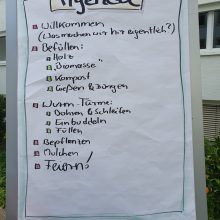 Agenda
Willkommen
(Was machen wir hir eigentlich?)
Befüllen:
Holz
"Biomasse"
Kompost
Gießen & Düngen
Wurm-Türme:
Bohren & Schleifen
Einbuddeln
Füllen
Bepflanzen
Mulchen
Feiern!